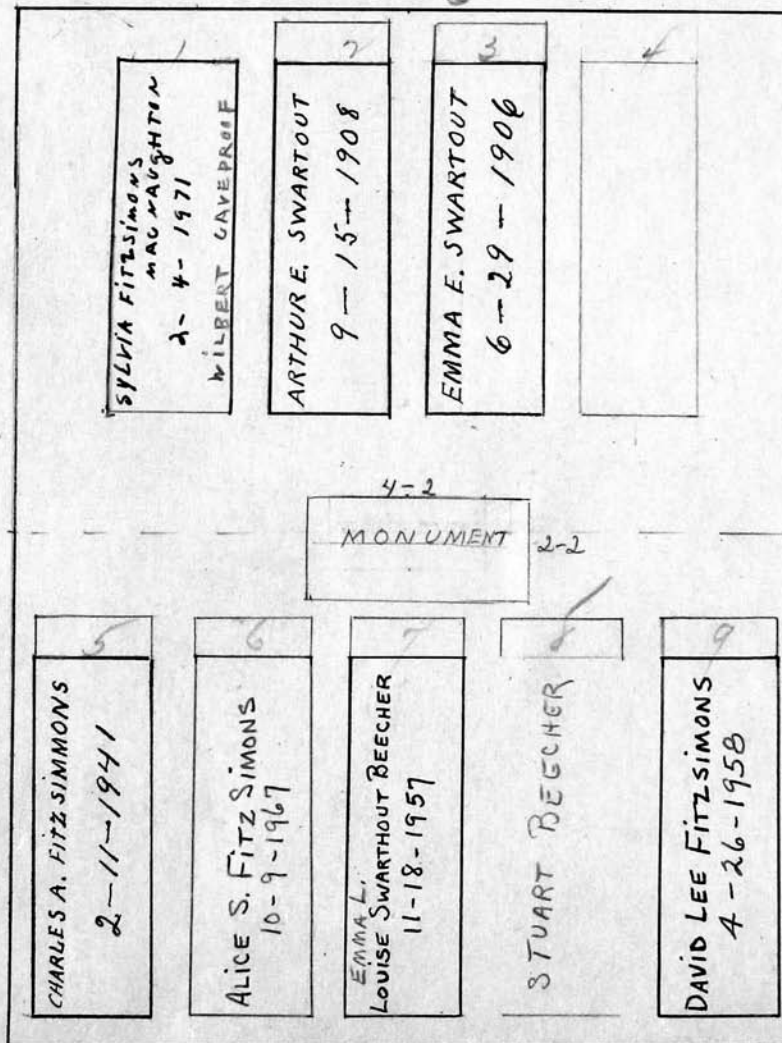 1
SYLVIA FITZSIMONS
MACNAUGHTON
2-4-1971
WILBERT CAVEPROOF
2
ARTHUR E. SWARTOUT
9-15-1908
3
EMMA E. SWARTOUT
6-29-1906
4
4-2
MONUMENT
2-2
5
CHARLES A. FITZSIMMONS
2-11-1941
6
ALICE S. FITZ SIMONS
10-9-1967
7
EMMA L.
LOUISE SWARTHOUT BEECHER
11-18-1957
8
STUART BEECHER
9
DAVID LEE FITZSIMONS
4-26-1958